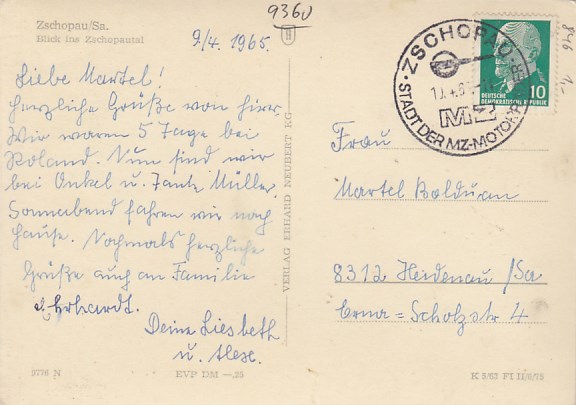 9360
Zschopau/Sa.
Blick ins Zschopautal
9/4. 1965.
Liebe Martel!
Herzliche Grüße von hier.
Wir waren 5 Tage bei
Roland. Nun sind wir
bei Onkel u. Tante Müller.
Sonnabend fahren wir nach
Hause. Nochmals herzliche
Grüße auch an Familie
Erhardt.
Deine Liesbeth
u.
9718 N
EVP DM —.25
VERLAG ERHARD NEUBERT KG
ZSCHOPAU
MZ
STADT DER MZ-MOTORRÄDER
10
DEUTSCHE
DEMOKRATISCHE REPUBLIK
Frau
Martel Balduan
8312 Heidenau/Sa
Erna=Scholz str 4
K 5/63 FI II/6/75